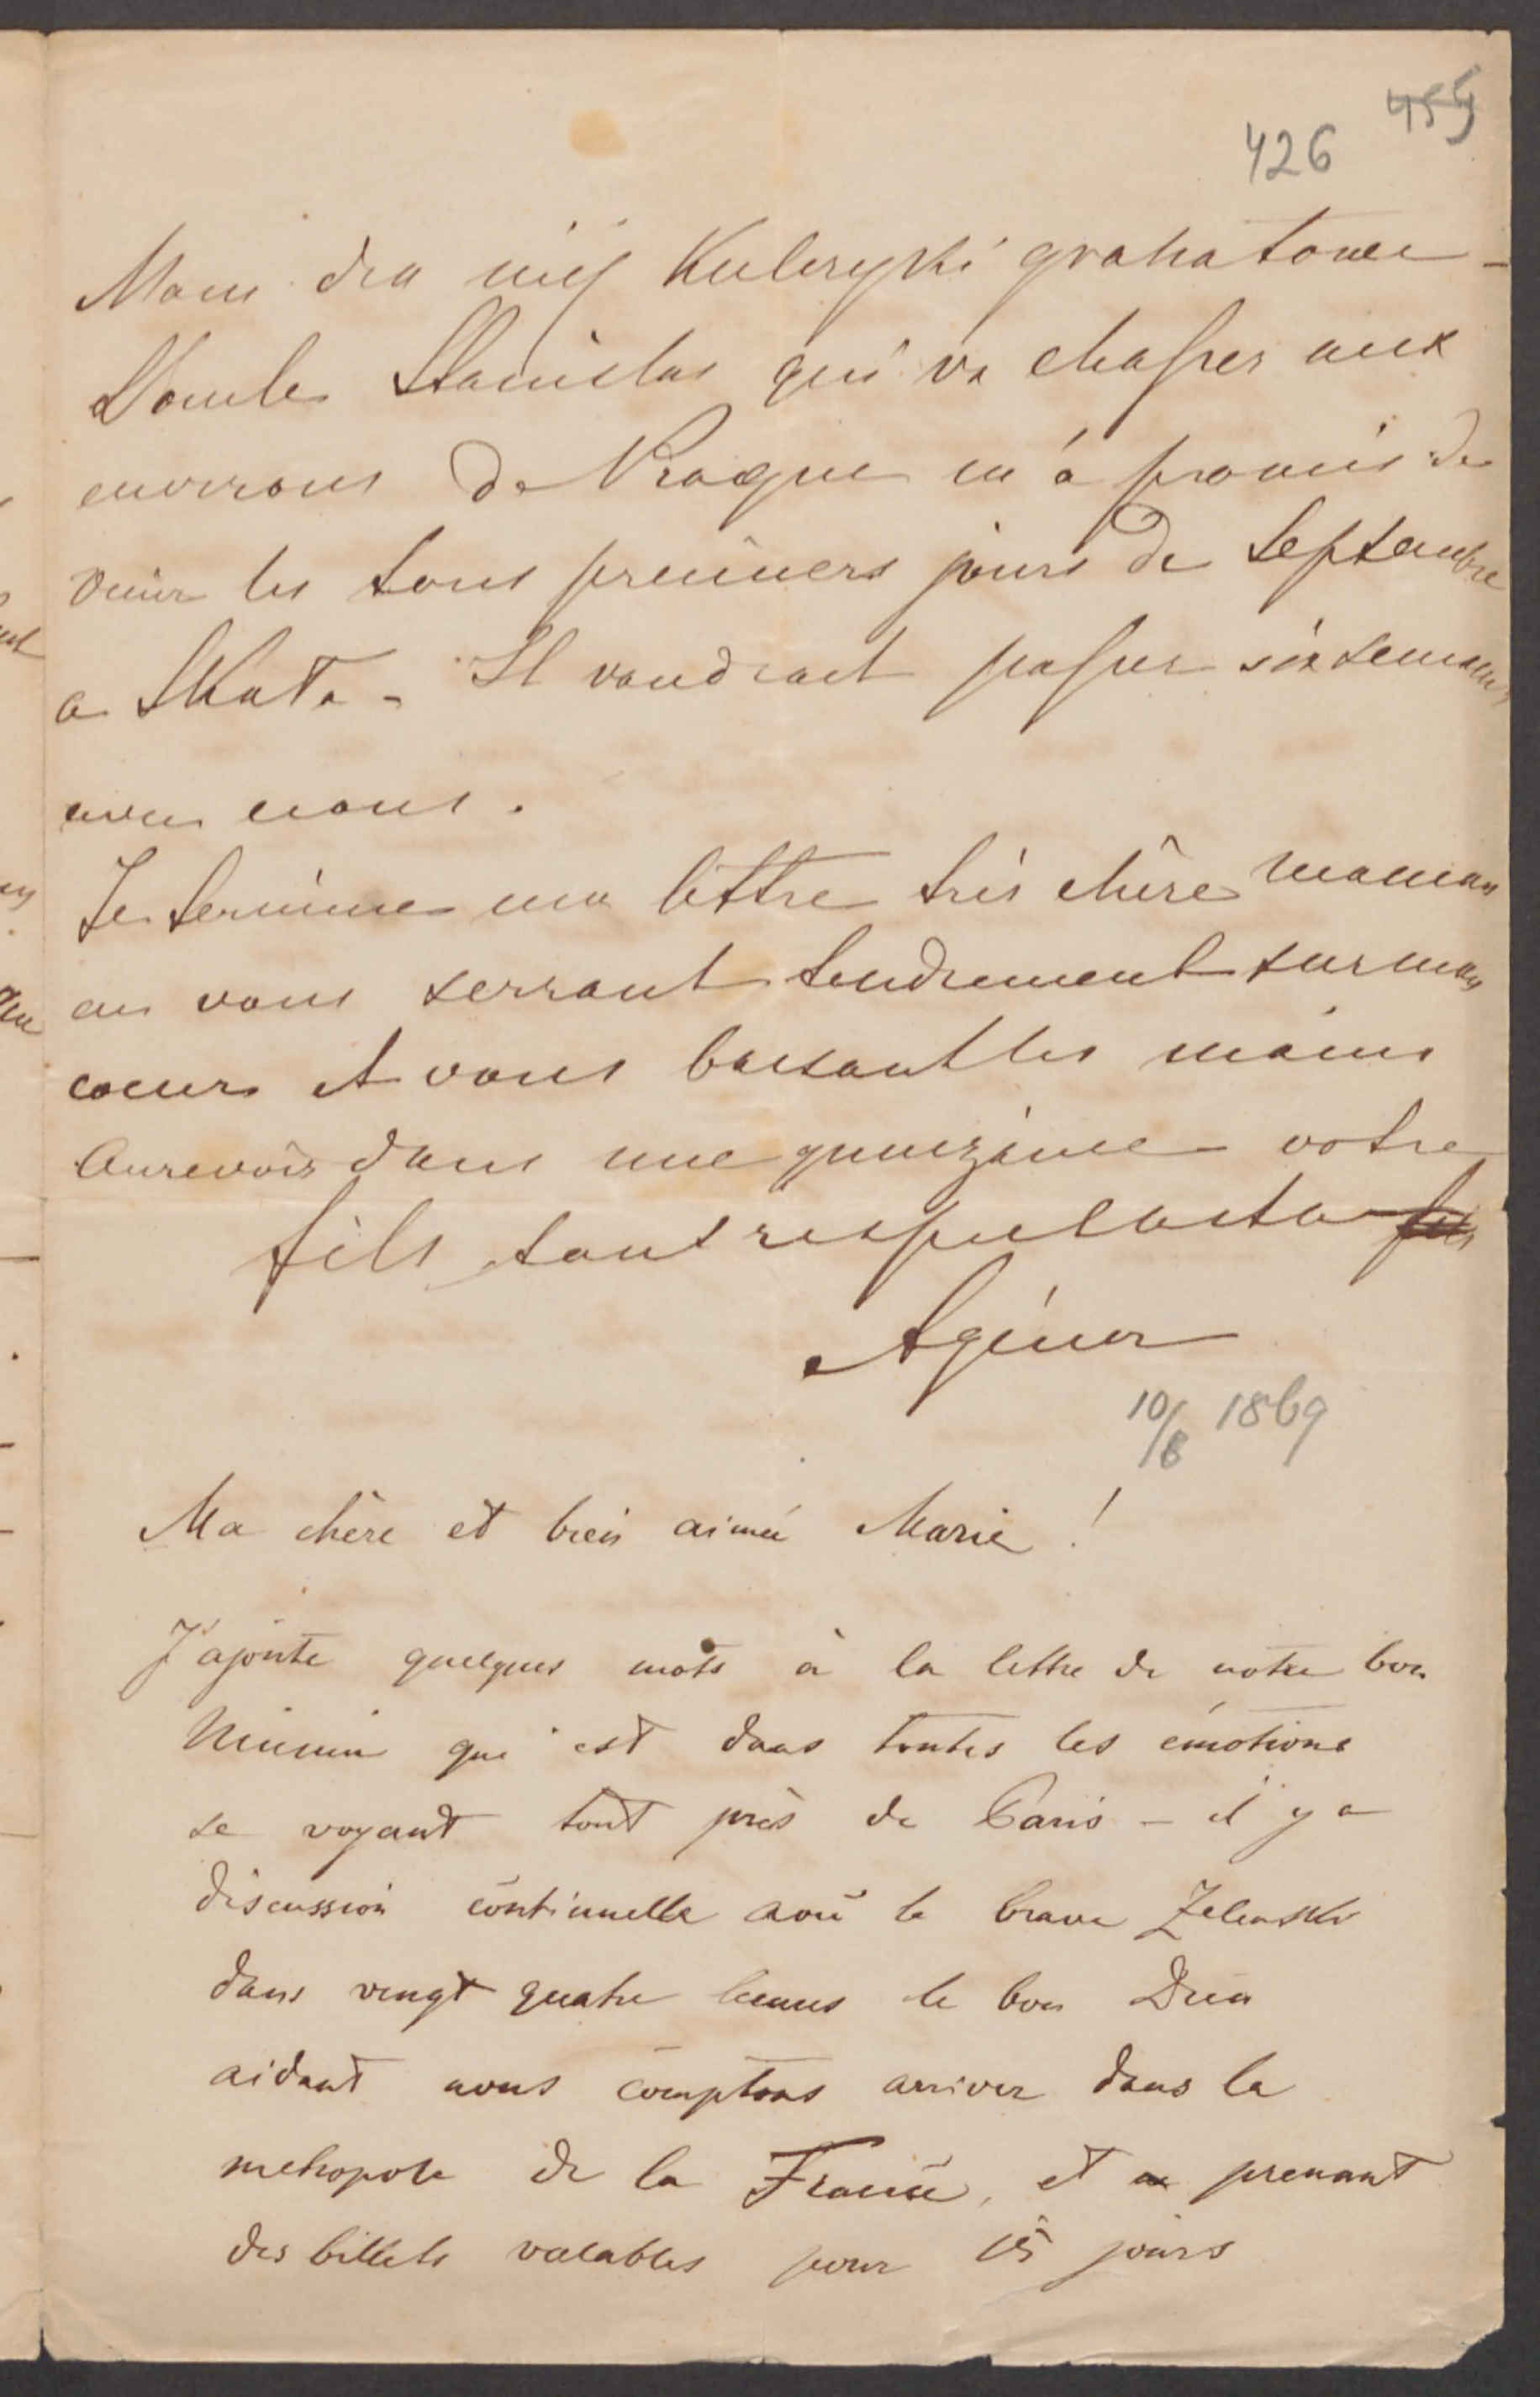 455
426
Mam dla niej Kuleryki gratiatowe -
Stanislas qui va chasser aux
environs de Prague m'a promis de
venir les tous premiers jours de Septembre
a Skata - Il voudrait passer six semaines
avec nous.
Je termine ma lettre très chère maman
en vous serrant tendrement sur mon
coeur et vous baisant les mains
Aurevoir dans une quinzaine votre
fils tout
Agénor
10/8 1869
Ma chère et bien aimée Marie !
J'ajoute quelques mots à la lettre de notre bon
Niunin qui est dans toutes les émotions
se voyant tout près de Paris - il y a
discussion continuelle avec le brave Zelenski
dans vingt quatre heures le bon Dieu
aidant nous comptons arriver dans la
metropole de la France, et prenant
des billets valables pour 15 jours